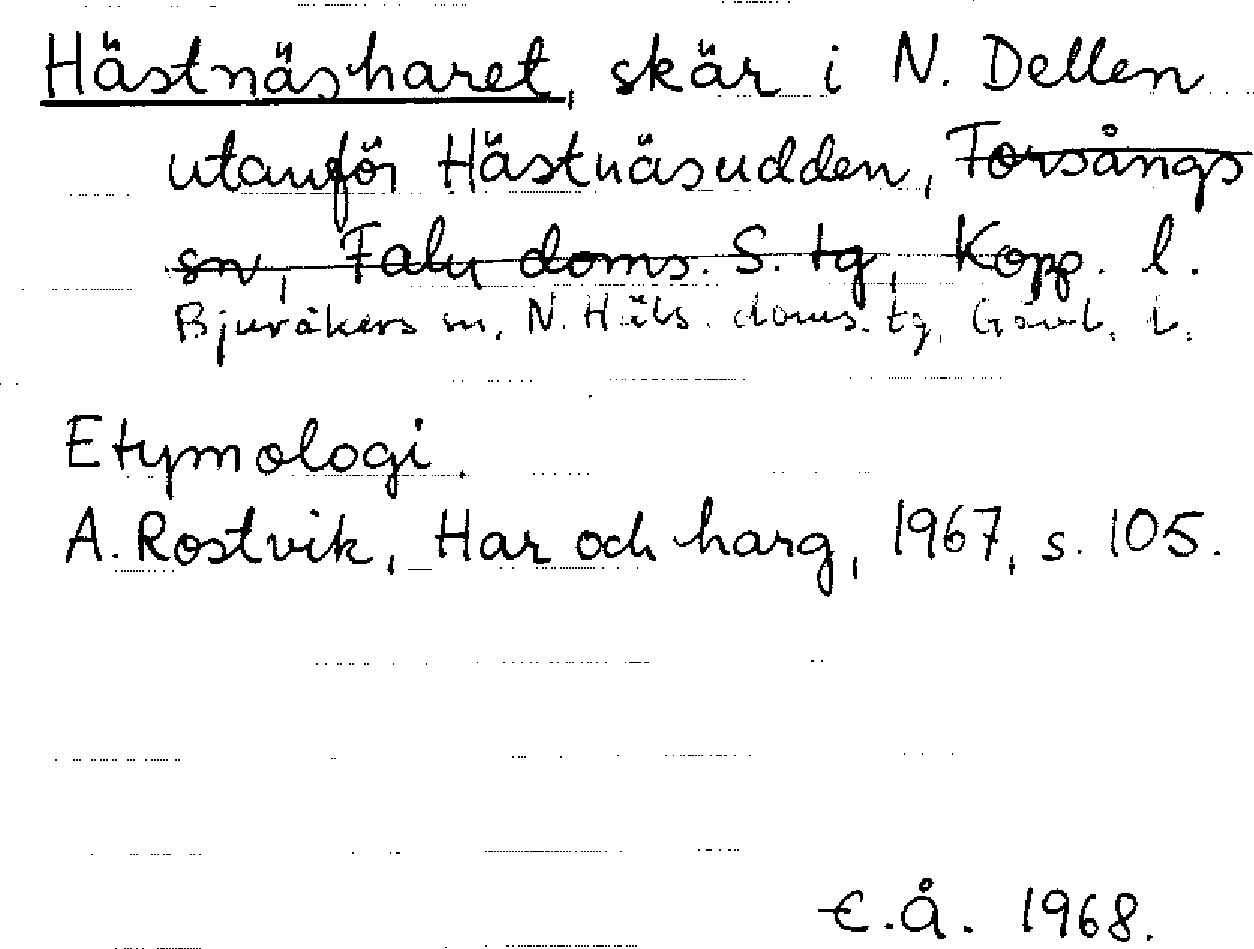 Hästnäsharet, skär i N. Dellen
utanför Hästnäsudden, Forsångs
sn, Falu doms. S. tg, Kopp. l.
Bjuråkers sn, N. Häls. doms. tg, Gävl. l.
Etymologi.
A. Rostvik, Har och harg, 1967, s. 105.
E.Å. 1968.